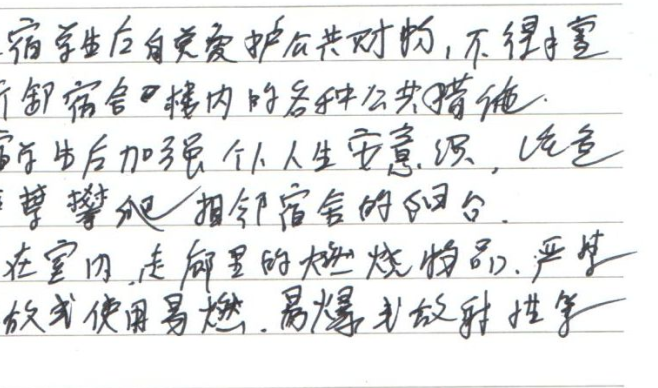 宿学生应自觉爱护公共财物,不得擅
卸宿舍楼内的各种公共措施.
学生应加强个人人生安意识,注意
禁攀爬相邻宿舍的阳台.
在室内、走廊里的燃烧物品、严禁
放或使用易燃、易爆或放射性等